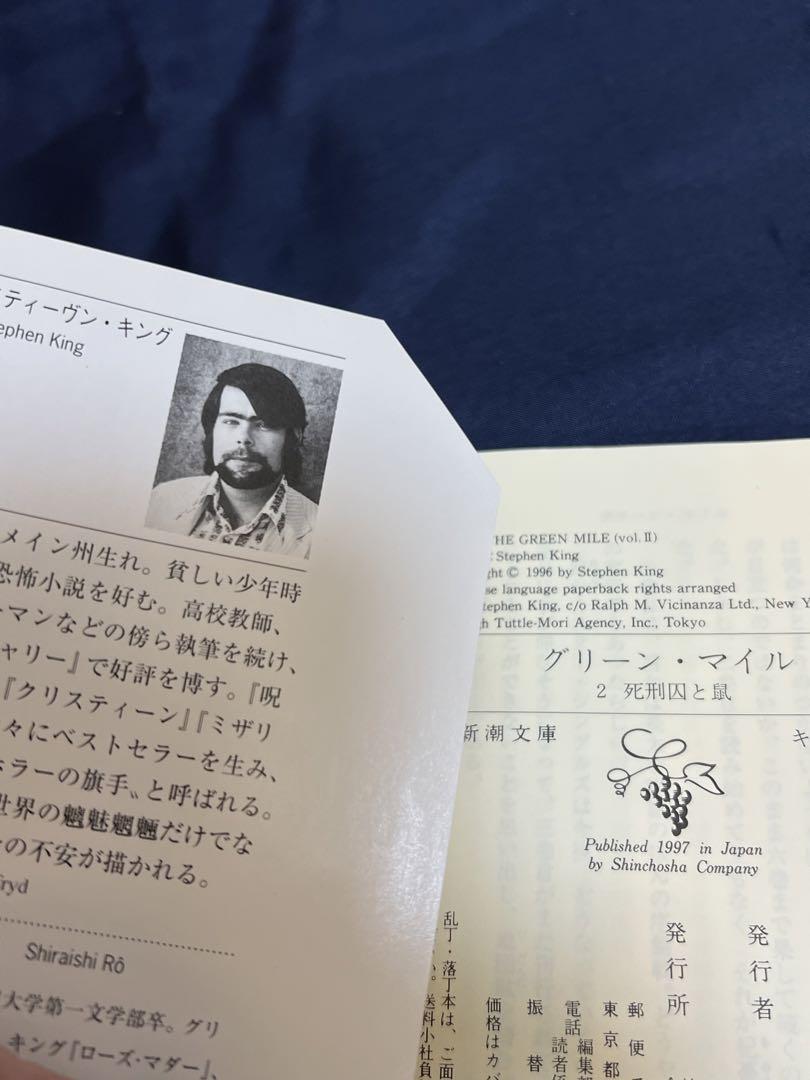 ティーヴン・キング
ephen King
メイン州生れ。貧しい少年時
恐怖小説を好む。高校教師、
ーマンなどの傍ら執筆を続け、
ャリー』で好評を博す。『呪
『クリスティーン』『ミザリ
々にベストセラーを生み、
ホラーの旗手〟と呼ばれる。
世界の魑魅魍魎だけでな
の不安が描かれる。
fryd
Shiraishi Rô
大学第一文学部卒。グリ
キング『ローズ・マダー』、
THE GREEN MILE (vol.Ⅱ)
: Stephen King
ght © 1996 by Stephen King
se language paperback rights arranged
Stephen King, c/o Ralph M. Vicinanza Ltd., New Y
h Tuttle-Mori Agency, Inc., Tokyo
グリーン・マイル
2 死刑囚と鼠
新潮文庫
キ
Published 1997 in Japan
by Shinchosha Company
発行者
発行所
郵便
東京都
電話 編集部
読者係
振替
価格はカバ
乱丁・落丁本は、ご面
い。送料小社負